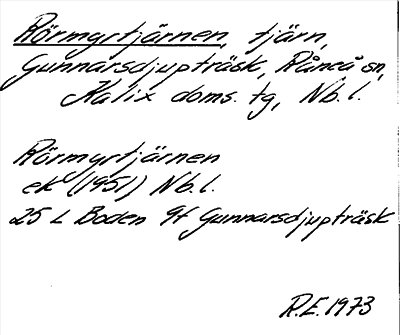 Rörmyrtjärnen, tjärn,
Gunnarsdjupträsk, Råneå sn,
Kalix doms. tg, Nb. l.
Rörmyrtjärnen
ek (1951) Nb.l.
25 L Boden 9f Gunnarsdjupträsk
R.E. 1973